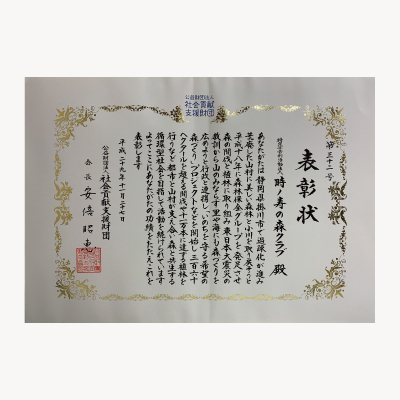 公益財団法人
社会貢献
支援財団
第三十二号
表彰状
特定非営利活動法人
時ノ寿の森クラブ 殿
あなたがたは静岡県掛川市で過疎化が進み
荒廃した山村に美しい森林と小川を取り戻そうと
平成十八年に森林保全グループを発足させ
森の間伐と植林に取り組み東日本大震災の
教訓から山のみならず里や海にも森づくりを
広めようと行政と連携し「いのちを守る希望の
森づくり」プロジェクトなどを開始し三百六十
ヘクタールを超える間伐や十二万本に達する植林を
行うなど都市と山村が支え合い森と共生する
循環型社会を目指して活動を続けられています
よってここにあなたがたの功績をたたえこれを
表彰します
平成二十九年十一月二十七日
公益財団法人 社会貢献支援財団
会長 安倍昭恵